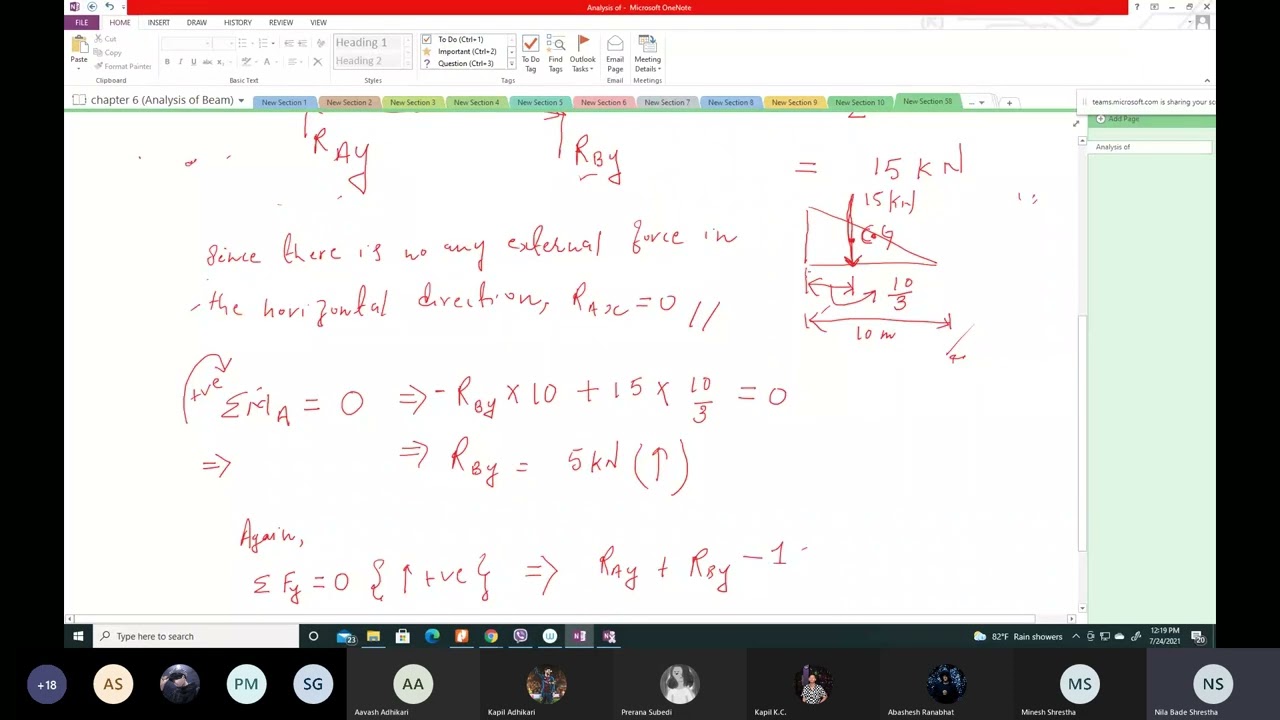 Analysis of - Microsoft OneNote
FILE HOME INSERT DRAW HISTORY REVIEW VIEW
Paste
Cut
Copy
Format Painter
Clipboard
B I U abc
Basic Text
Heading 1
Heading 2
Styles
To Do (Ctrl+1)
Important (Ctrl+2)
Question (Ctrl+3)
To Do Tag
Find Tags
Outlook Tasks
Tags
Email Page
Email
Meeting Details
Meetings
chapter 6 (Analysis of Beam)
New Section 1 New Section 2 New Section 3 New Section 4 New Section 5 New Section 6 New Section 7 New Section 8 New Section 9 New Section 10 New Section 58
teams.microsoft.com is sharing your sc
Add Page
Analysis of
R_Ay R_By
= 15 kN
15 kN
C.G
10/3
10 m
Since there is no any external force in
the horizontal direction, R_Ax = 0 //
+ve ΣM_A = 0 ⇒ - R_By × 10 + 15 × 10/3 = 0
⇒ ⇒ R_By = 5 kN (↑)
Again,
ΣFy = 0 {↑ +ve} ⇒ R_Ay + R_By - 1
Type here to search
23
82°F Rain showers
12:19 PM
7/24/2021
20
+18 AS PM SG AA MS NS
Aavash Adhikari Kapil Adhikari Prerana Subedi Kapil K.C. Abashesh Ranabhat Minesh Shrestha Nila Bade Shrestha